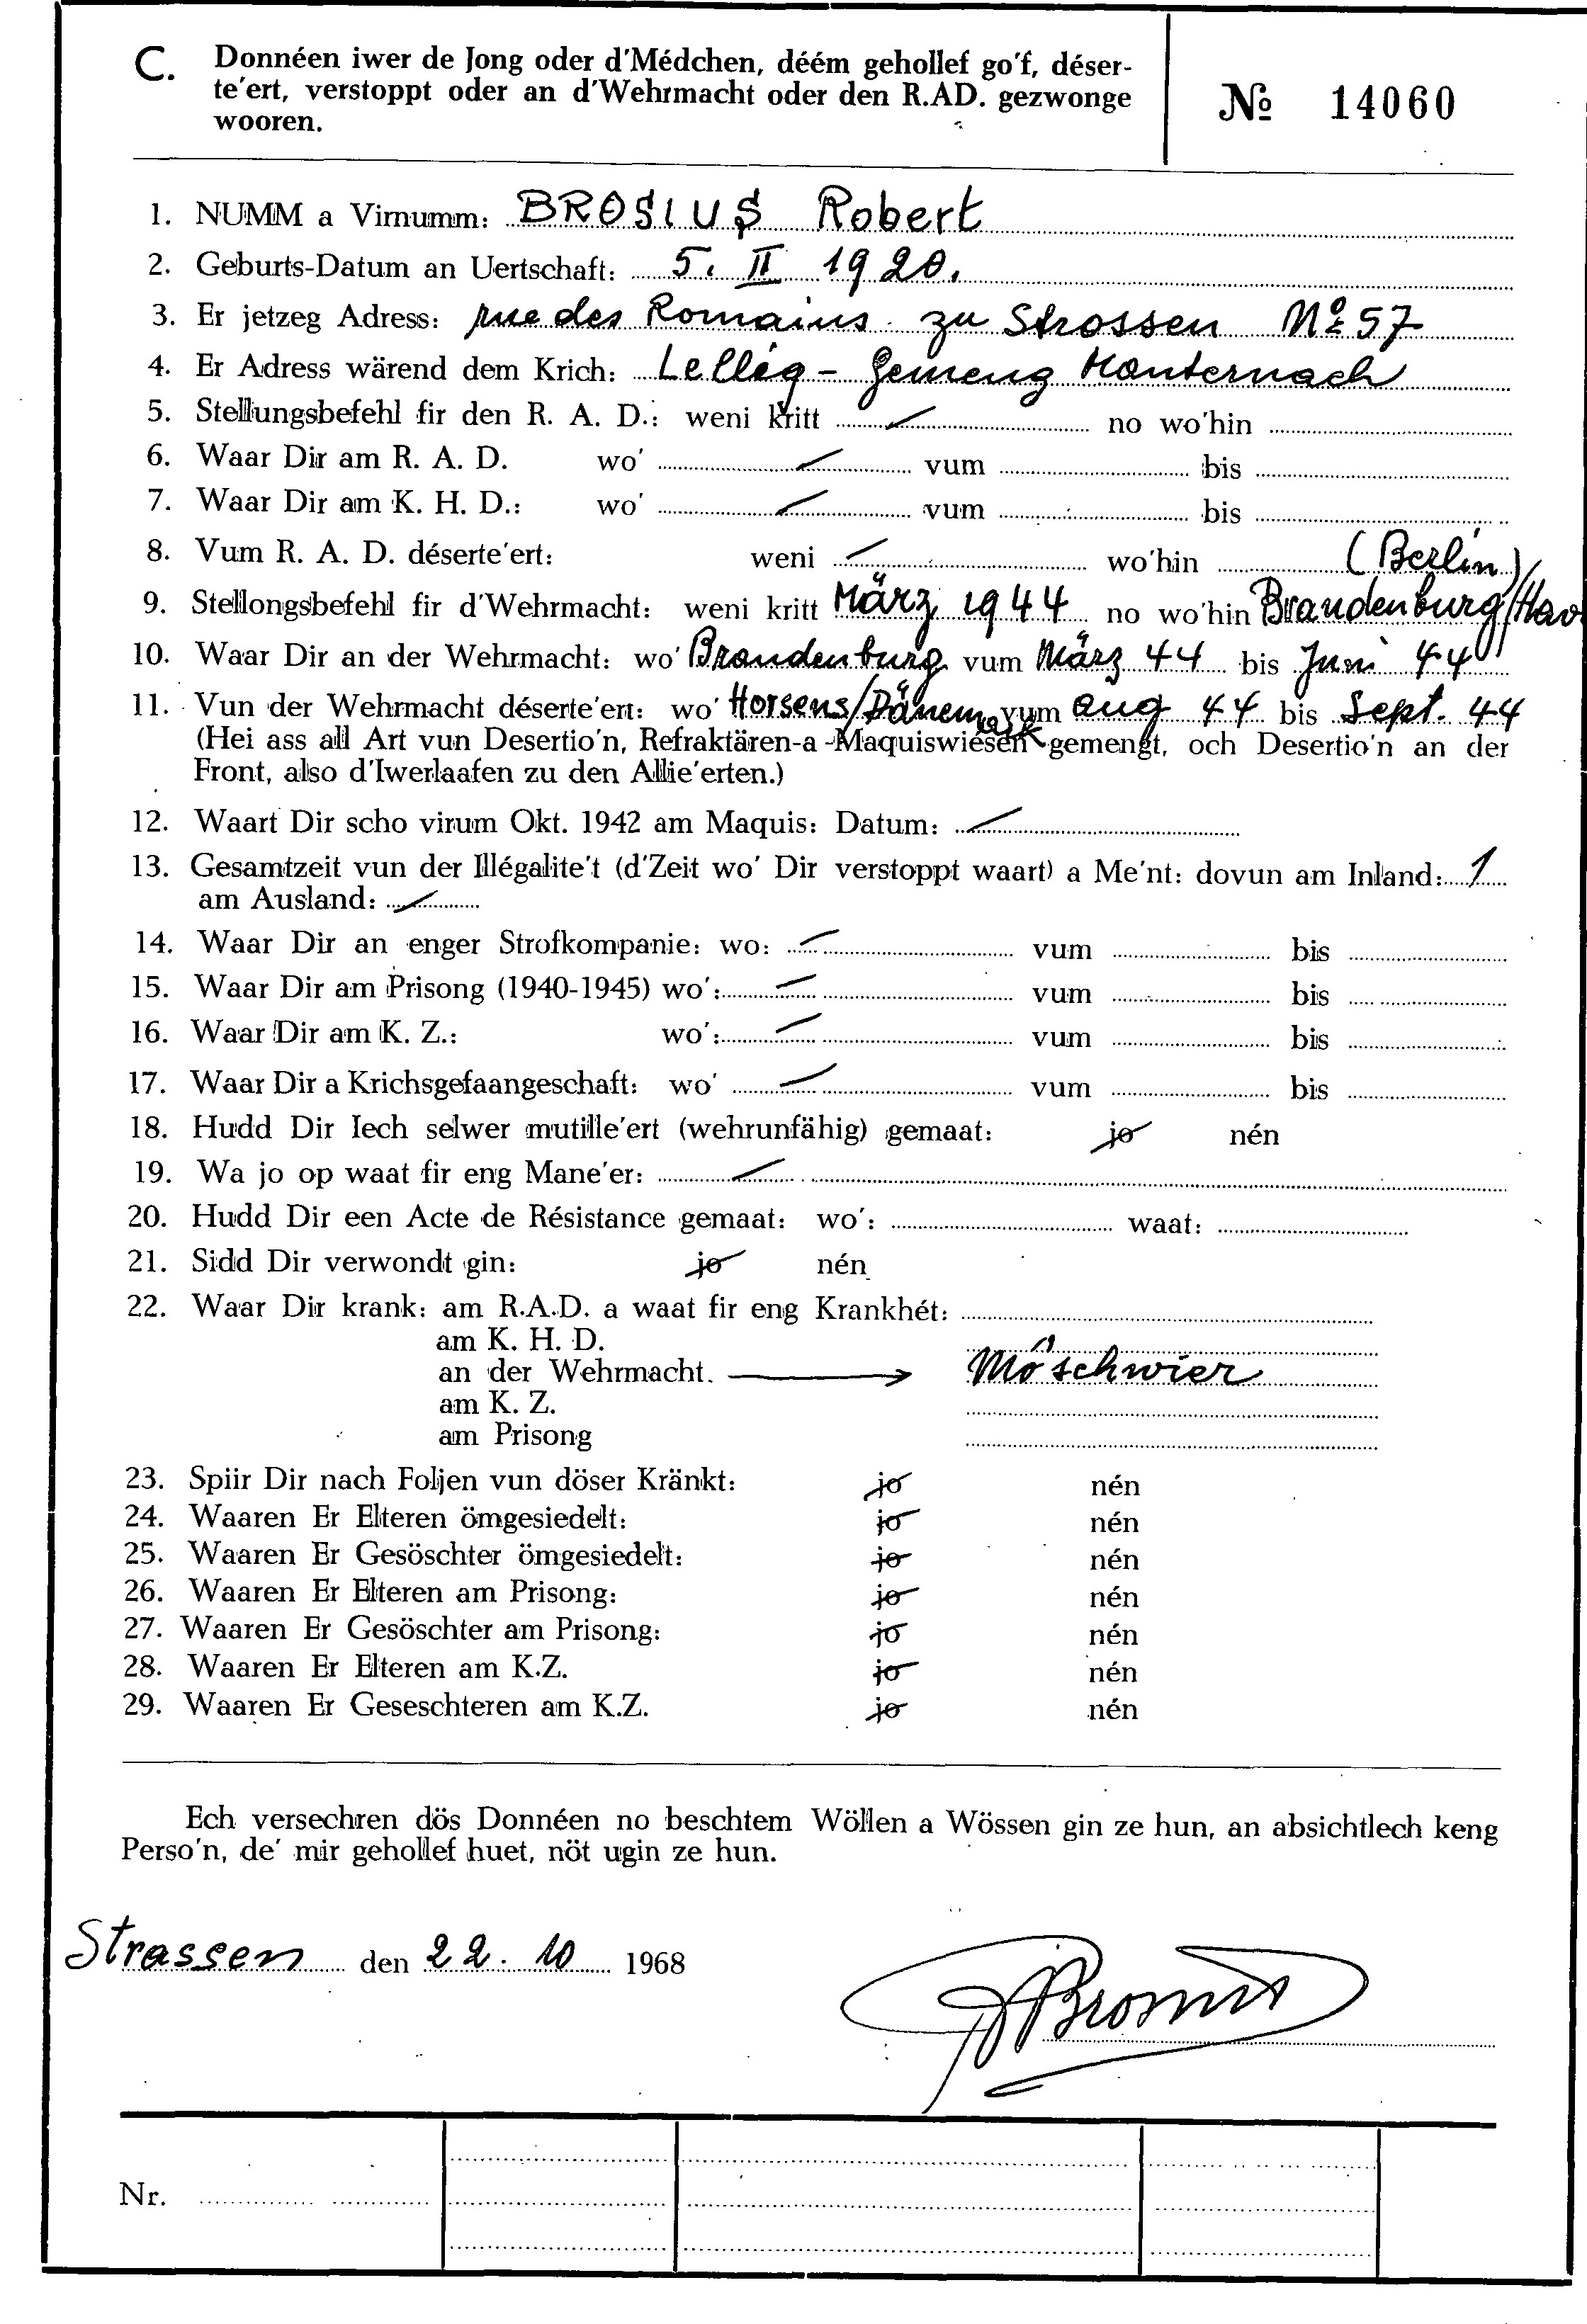 C. Donnéen iwer de Jong oder d'Médchen, déém gehollef go'f, déser-
te'ert, verstoppt oder an d'Wehrmacht oder den R.AD. gezwonge
wooren.
№ 14060
1. NUMM a Virnumm: BROSIUS Robert
2. Geburts-Datum an Uertschaft: 5. II 1920.
3. Er jetzeg Adress: rue des Romains zu Strossen No 57
4. Er Adress wärend dem Krich: Lellég - Gemeng Manternach
5. Stellungsbefehl fir den R. A. D.: weni kritt / no wo'hin
6. Waar Dir am R. A. D. wo' / vum bis
7. Waar Dir am K. H. D.: wo' / vum bis
8. Vum R. A. D. déserte'ert: weni / wo'hin (Berlin)
9. Stellongsbefehl fir d'Wehrmacht: weni kritt März 1944 no wo'hin Brandenburg/Hav
10. Waar Dir an der Wehrmacht: wo' Brandenburg vum März 44 bis Juni 44
11. Vun der Wehrmacht déserte'ert: wo' Horsens/Dänemark vum aug 44 bis Sept. 44
(Hei ass all Art vun Desertio'n, Refraktären-a -Maquiswiesen gemengt, och Desertio'n an der
Front, also d'Iwerlaafen zu den Allie'erten.)
12. Waart Dir scho virum Okt. 1942 am Maquis: Datum: /
13. Gesamtzeit vun der Illégalite't (d'Zeit wo' Dir verstoppt waart) a Me'nt: dovun am Inland: 1
am Ausland: /
14. Waar Dir an enger Strofkompanie: wo: / vum bis
15. Waar Dir am Prisong (1940-1945) wo': / vum bis
16. Waar Dir am K. Z.: wo': / vum bis
17. Waar Dir a Krichsgefaangeschaft: wo' / vum bis
18. Hudd Dir Iech selwer mutille'ert (wehrunfähig) gemaat: jo nén
19. Wa jo op waat fir eng Mane'er: /
20. Hudd Dir een Acte de Résistance gemaat: wo': waat:
21. Sidd Dir verwondt gin: jo nén
22. Waar Dir krank: am R.A.D. a waat fir eng Krankhét:
am K. H. D.
an der Wehrmacht. → Mo'schwier
am K. Z.
am Prisong
23. Spiir Dir nach Foljen vun döser Kränkt: jo nén
24. Waaren Er Elteren ömgesiedelt: jo nén
25. Waaren Er Gesöschter ömgesiedelt: jo nén
26. Waaren Er Elteren am Prisong: jo nén
27. Waaren Er Gesöschter am Prisong: jo nén
28. Waaren Er Elteren am K.Z. jo nén
29. Waaren Er Geseschteren am K.Z. jo nén
Ech versechren dös Donnéen no beschtem Wöllen a Wössen gin ze hun, an absichtlech keng
Perso'n, de' mir gehollef huet, nöt ugin ze hun.
Strassen den 22. 10 1968
Nr.